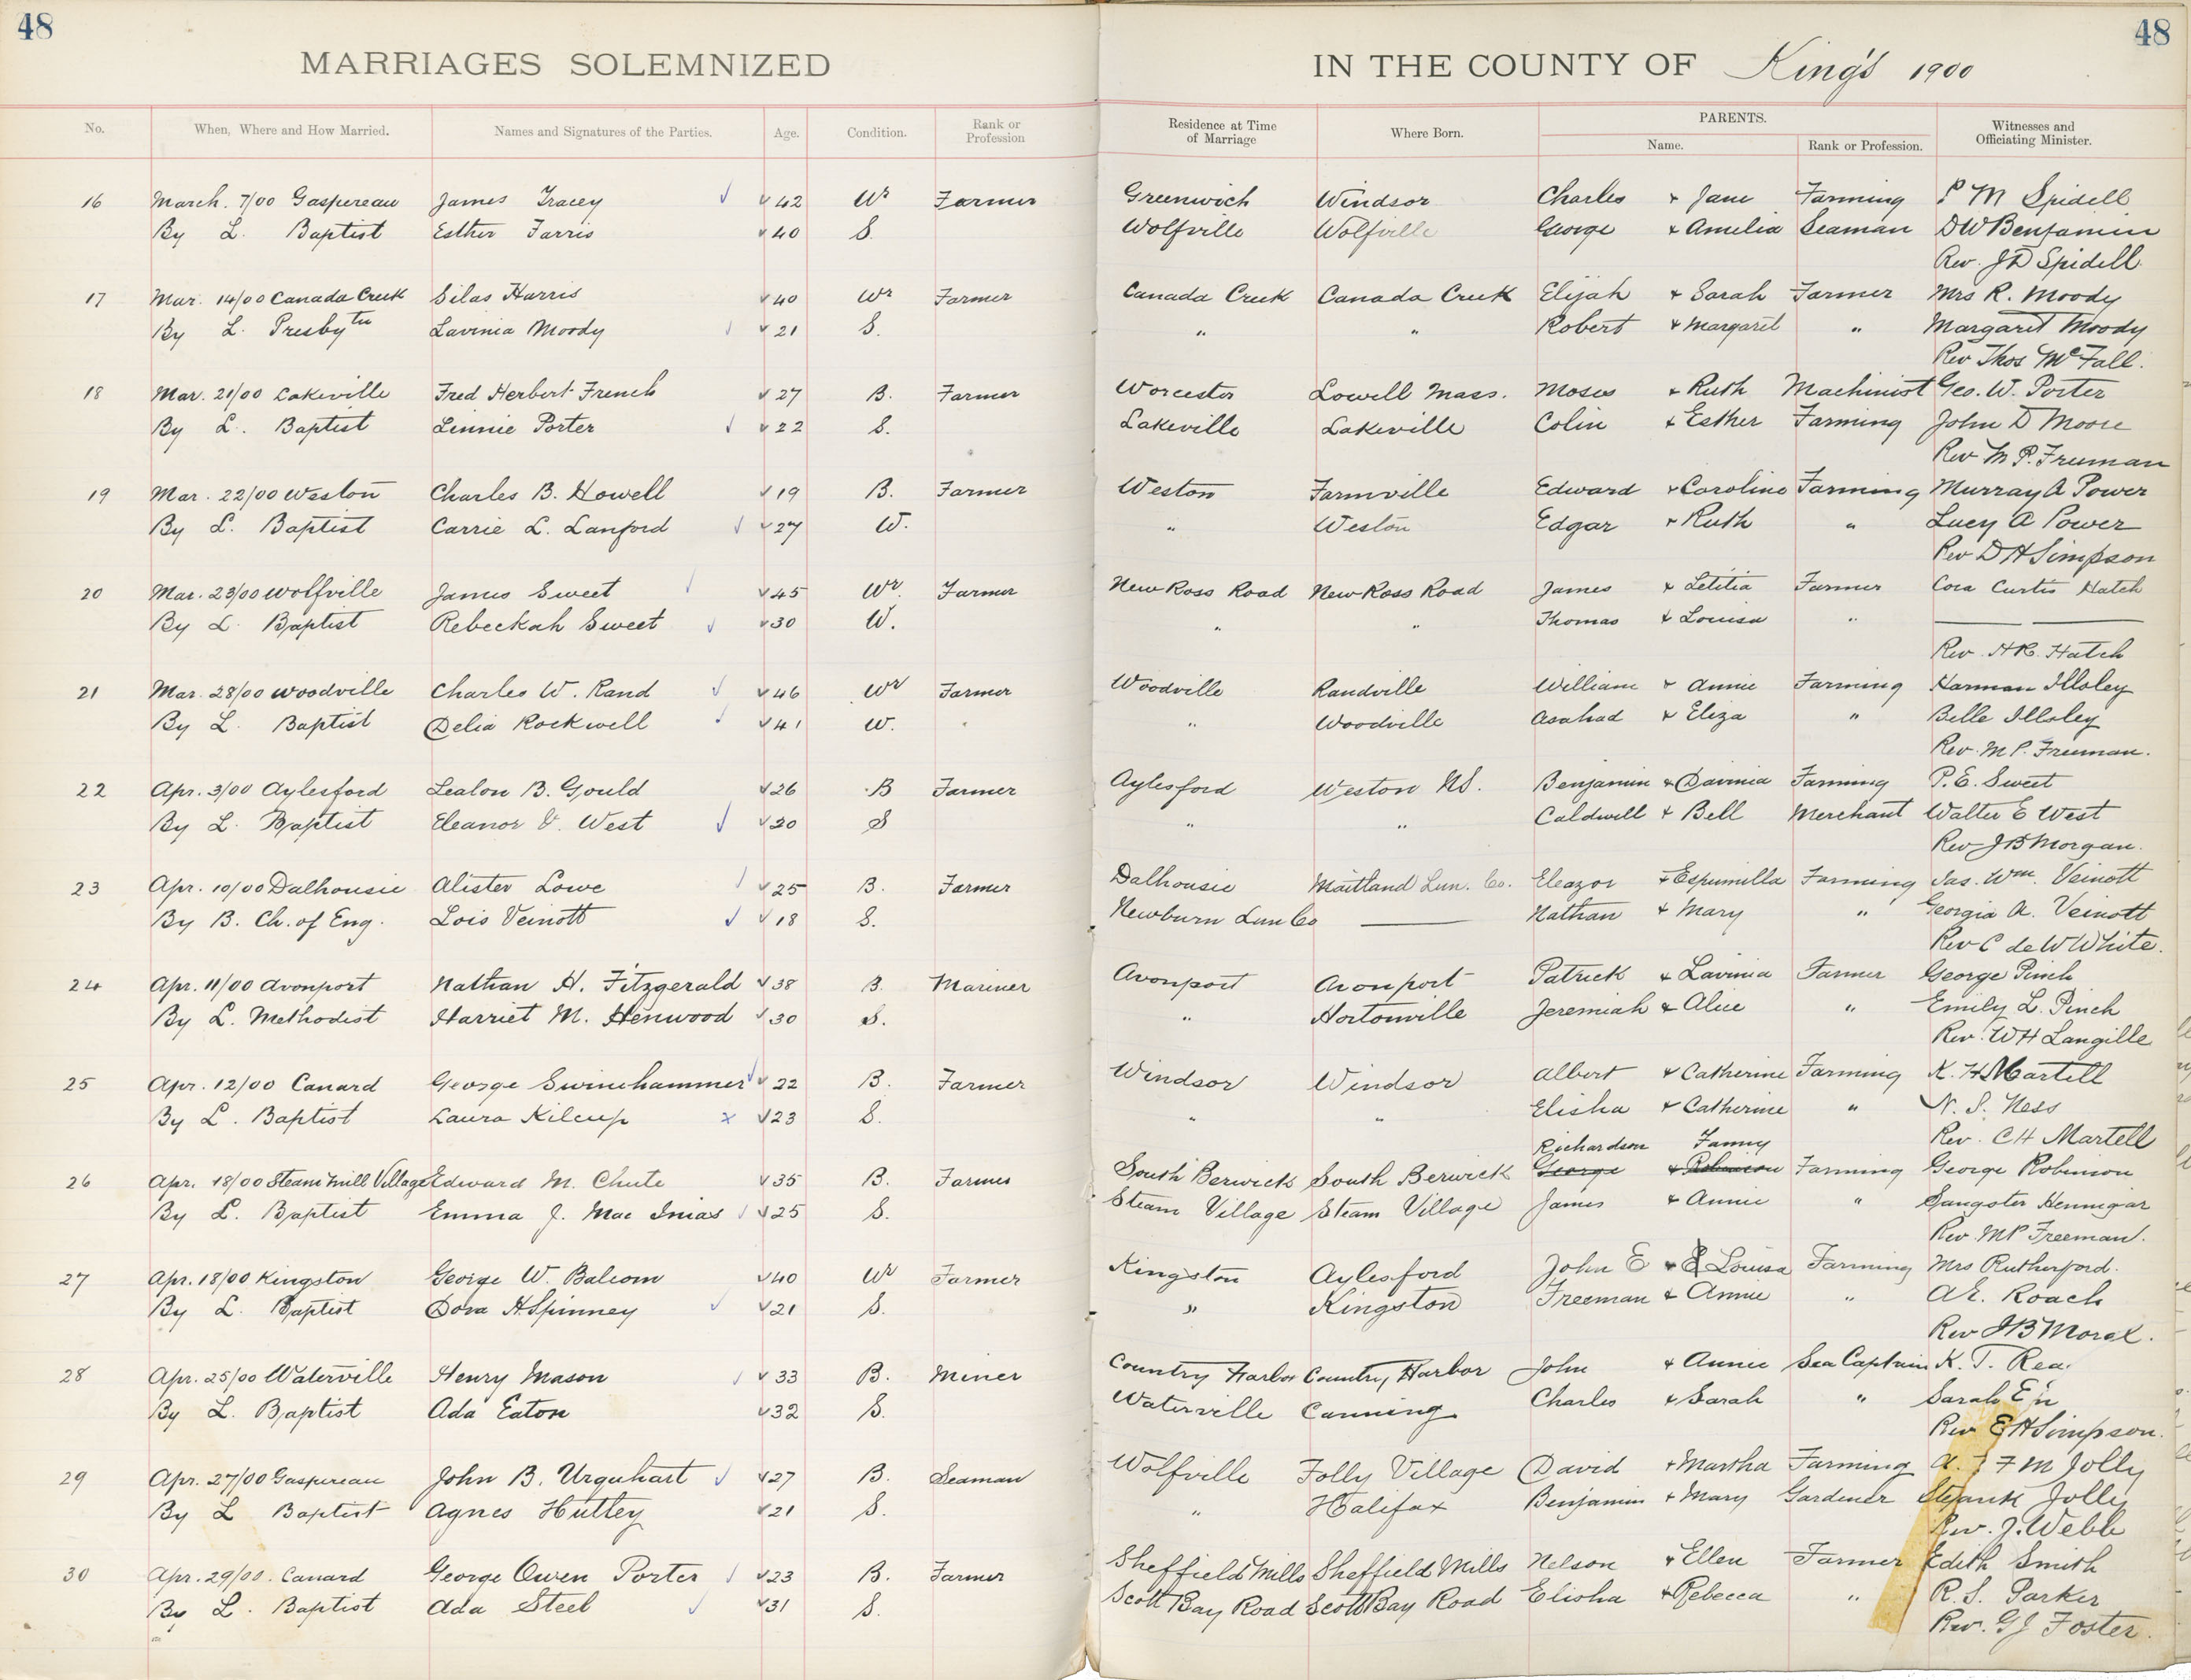 48 48
MARRIAGES SOLEMNIZED IN THE COUNTY OF King's 1900
No. When, Where and How Married. Names and Signatures of the Parties. Age. Condition. Rank or Profession Residence at Time of Marriage Where Born. PARENTS. Name. Rank or Profession. Witnesses and Officiating Minister.
16 March. 7/00 Gaspereau James Tracey 42 Wr Farmer Greenwich Windsor Charles + Jane Farming P M Spidell
By L. Baptist Esther Farris 40 S. Wolfville Wolfville George + Amelia Seaman D W Benjamin
Rev. J D Spidell
17 Mar. 14/00 Canada Creek Silas Harris 40 Wr Farmer Canada Creek Canada Creek Elijah + Sarah Farmer Mrs R. Moody
By L. Presbytn Lavinia Moody 21 S. " " Robert + Margaret " Margaret Moody
Rev Thos McFall.
18 Mar. 21/00 Lakeville Fred Herbert French 27 B. Farmer Worcester Lowell Mass. Moses + Ruth Machinist Geo. W. Porter
By L. Baptist Linnie Porter 22 S. Lakeville Lakeville Colin + Esther Farming John D Moore
Rev M P. Freeman
19 Mar. 22/00 Weston Charles B. Howell 19 B. Farmer Weston Farmville Edward + Caroline Farming Murray A Power
By L. Baptist Carrie L. Lanford 27 W. " Weston Edgar + Ruth " Lucy A Power
Rev D H Simpson
20 Mar. 23/00 Wolfville James Sweet 45 Wr. Farmer New Ross Road New Ross Road James + Letitia Farmer Cora Curtis Hatch
By L Baptist Rebeckah Sweet 30 W. " " Thomas + Louisa "
Rev. H R. Hatch
21 Mar. 28/00 Woodville Charles W. Rand 46 Wr Farmer Woodville Randville William + Annie Farming Harman Illsley
By L. Baptist Delia Rockwell 41 W. " Woodville Asahad + Eliza " Belle Illsley
Rev. M P. Freeman.
22 Apr. 3/00 Aylesford Lealon B. Gould 26 B Farmer Aylesford Weston NS. Benjamin + Davinia Farming P. E. Sweet
By L. Baptist Eleanor V. West 20 S " " Caldwell + Bell Merchant Walter E West
Rev J B Morgan.
23 Apr. 10/00 Dalhousie Alister Lowe 25 B. Farmer Dalhousie Maitland Lun. Co. Eleazor + Espumilla Farming Jas. Wm. Veinott
By B. Ch. of Eng. Lois Veinott 18 S. Newburn Lun Co Nathan + Mary " Georgia A. Veinott
Rev C de W White.
24 Apr. 11/00 Avonport Nathan H. Fitzgerald 38 B. Mariner Avonport Avonport Patrick + Lavinia Farmer George Pinch
By L. Methodist Harriet M. Henwood 30 S. " Hortonville Jeremiah + Alice " Emily L. Pinch
Rev. W H Langille
25 Apr. 12/00 Canard George Swinehammer 22 B. Farmer Windsor Windsor Albert + Catherine Farming K. H Martell
By L. Baptist Laura Kilcup 23 S. " " Elisha + Catherine " N. S. Ness
Richardson Fanny Rev. C H Martell
26 Apr. 18/00 Steam Mill Village Edward M. Chute 35 B. Farmer South Berwick South Berwick George + Robinson Farming George Robinson
By L. Baptist Emma J. Mac Inias 25 S. Steam Village Steam Village James + Annie " Sangster Hennigar
Rev. M P Freeman.
27 Apr. 18/00 Kingston George W. Balcom 40 Wr Farmer Kingston Aylesford John E + Louisa Farming Mrs Rutherford.
By L. Baptist Dora H. Spinney 21 S. " Kingston Freeman + Annie " A E. Roach
Rev J B
28 Apr. 25/00 Waterville Henry Mason 33 B. Miner Country Harbor Country Harbor John + Annie Sea Captain K. T. Rea
By L. Baptist Ada Eaton 32 S. Waterville Canning Charles + Sarah " Sarah E
Rev E H Simpson.
29 Apr. 27/00 Gaspereau John B. Urquhart 27 B. Seaman Wolfville Folly Village David + Martha Farming F M Jolly
By L Baptist Agnes Huttey 21 S. " Halifax Benjamin + Mary Gardener Jolly
Rev. J. Webb
30 Apr. 29/00. Canard George Owen Porter 23 B. Farmer Sheffield Mills Sheffield Mills Nelson + Ellen Farmer Edith Smith
By L. Baptist Ada Steel 31 S. Scott Bay Road Scott Bay Road Elisha + Rebecca " R. S. Parker
Rev. G J Foster.